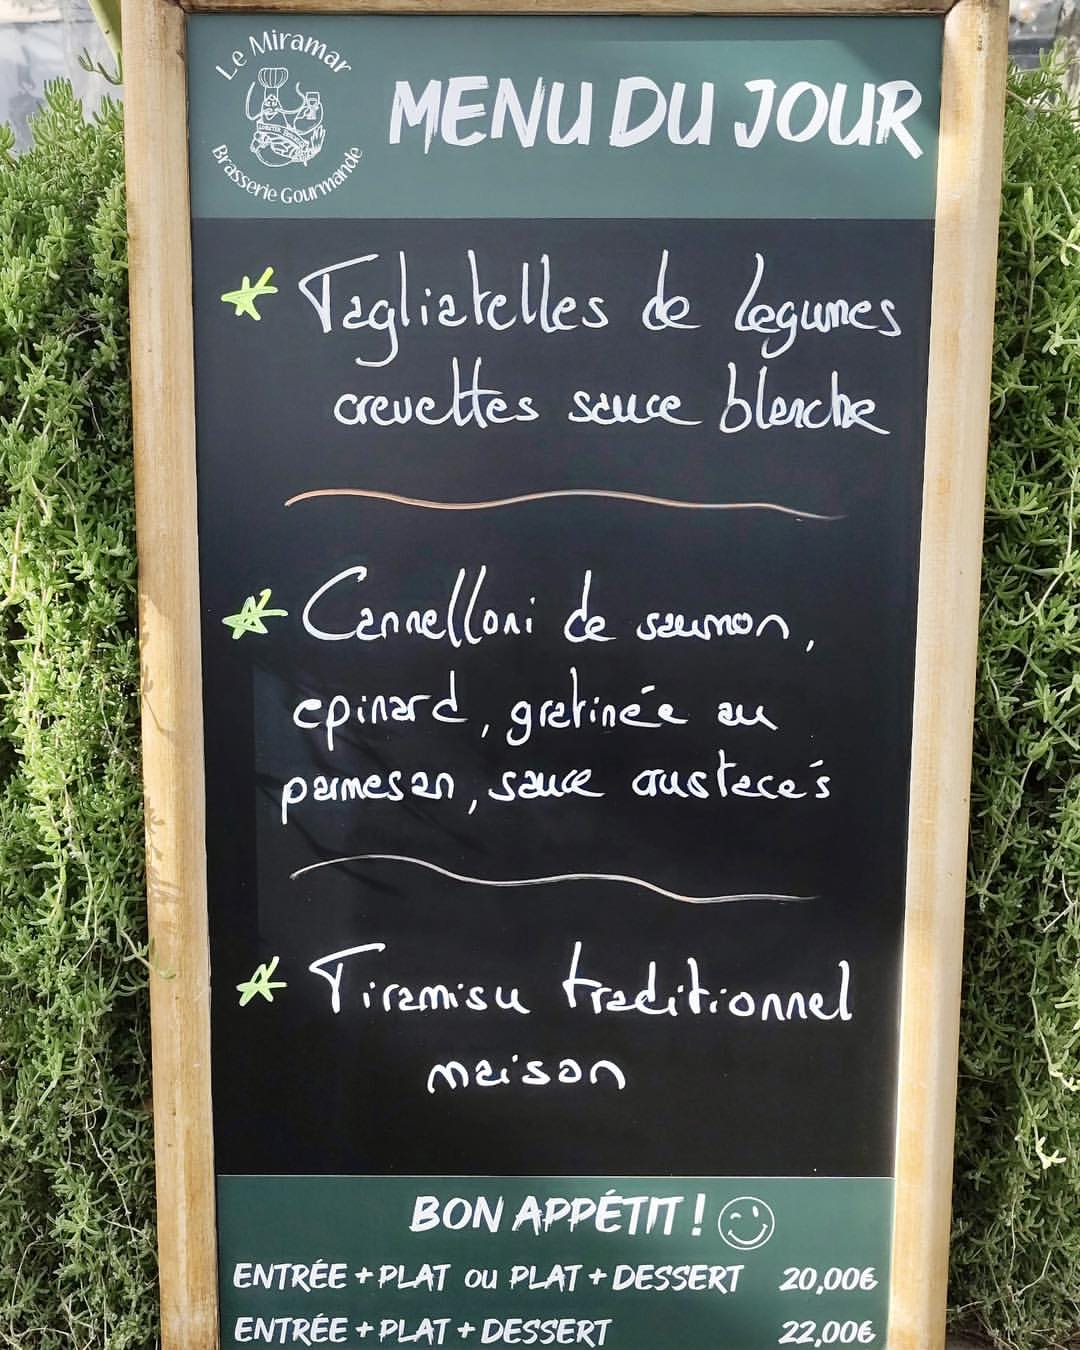 Le Miramar
Brasserie Gourmande
MENU DU JOUR
Tagliatelles de légumes
crevettes sauce blanche
Cannelloni de saumon,
epinard, gratinée au
parmesan, sauce crustacés
Tiramisu traditionnel
maison
BON APPÉTIT !
ENTRÉE + PLAT ou PLAT + DESSERT 20,00€
ENTRÉE + PLAT + DESSERT 22,00€